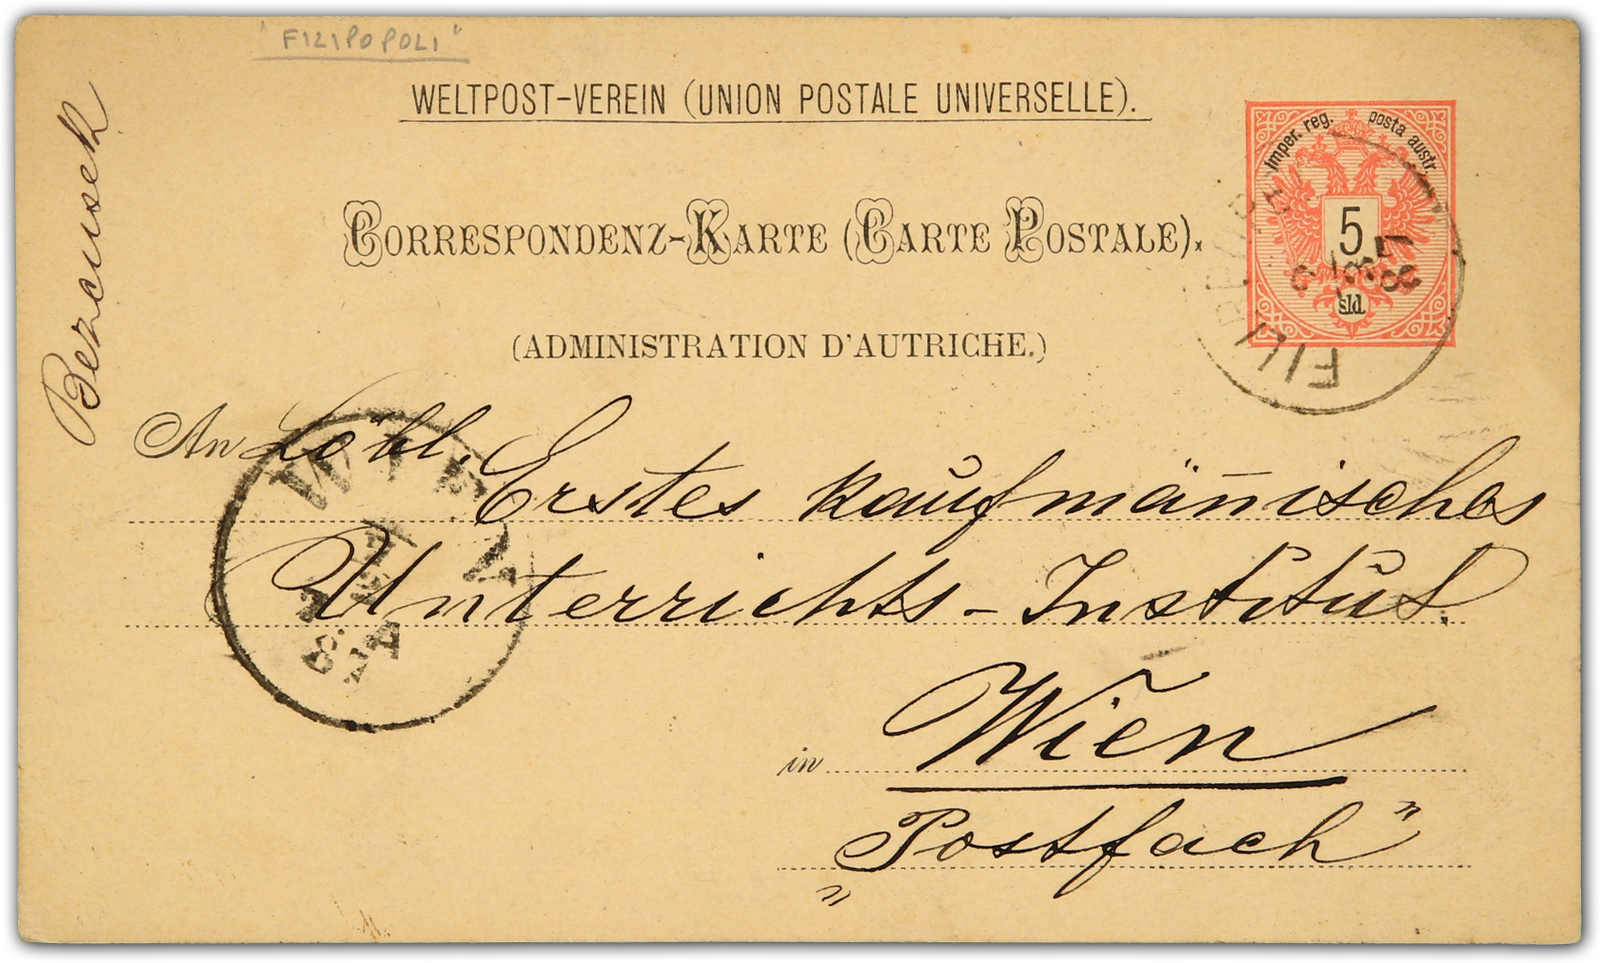 "FILIPOPOLI"
WELTPOST-VEREIN (UNION POSTALE UNIVERSELLE).
Imper. reg. posta austr.
5
sld.
CORRESPONDENZ-KARTE (CARTE POSTALE).
(ADMINISTRATION D'AUTRICHE.)
An Löbl. Erstes kaufmän̄isches
Unterrichts-Institut.
in Wien
„Postfach"
WIEN